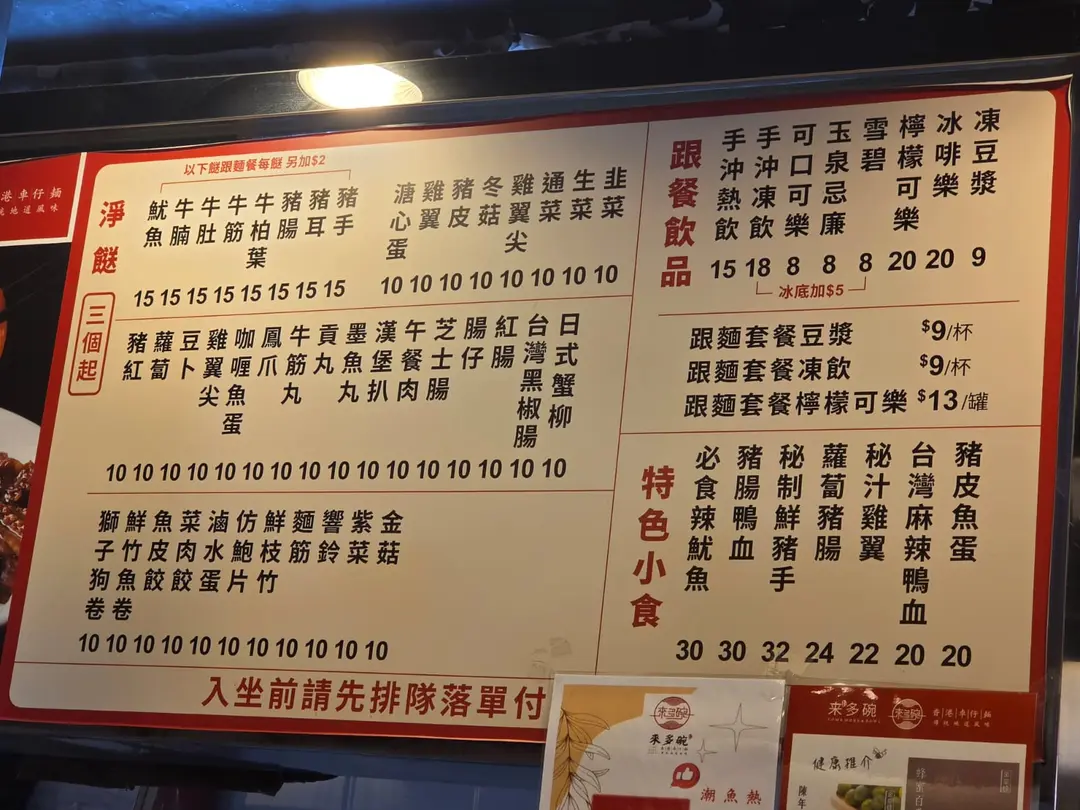 港車仔麵
統地道風味
淨餸
三個起
以下餸跟麵餐每餸 另加$2
魷魚 牛腩 牛肚 牛筋 牛柏葉 豬腸 豬耳 豬手
15 15 15 15 15 15 15 15
溏心蛋 雞翼 豬皮 冬菇 雞翼尖 通菜 生菜 韭菜
10 10 10 10 10 10 10 10
豬紅 蘿蔔 豆卜 雞翼尖 咖喱魚蛋 鳳爪 牛筋丸 貢丸 墨魚丸 漢堡扒 午餐肉 芝士腸 腸仔 紅腸 台灣黑椒腸 日式蟹柳
10 10 10 10 10 10 10 10 10 10 10 10 10 10 10 10
獅子狗卷 鮮竹魚卷 魚皮餃 菜肉餃 滷水蛋 仿鮑片 鮮枝竹 麵筋 響鈴 紫菜 金菇
10 10 10 10 10 10 10 10 10 10 10
入坐前請先排隊落單付
跟餐飲品
手沖熱飲 手沖凍飲 可口可樂 玉泉忌廉 雪碧 檸檬可樂 冰啡樂 凍豆漿
15 18 8 8 8 20 20 9
冰底加$5
跟麵套餐豆漿 $9/杯
跟麵套餐凍飲 $9/杯
跟麵套餐檸檬可樂 $13/罐
特色小食
必食辣魷魚 豬腸鴨血 秘制鮮豬手 蘿蔔豬腸 秘汁雞翼 台灣麻辣鴨血 豬皮魚蛋
30 30 32 24 22 20 20
來多碗
來多碗
潮魚熱
來多碗
來多碗
香港車仔麵
傳統地道風味
健康推介
陳年